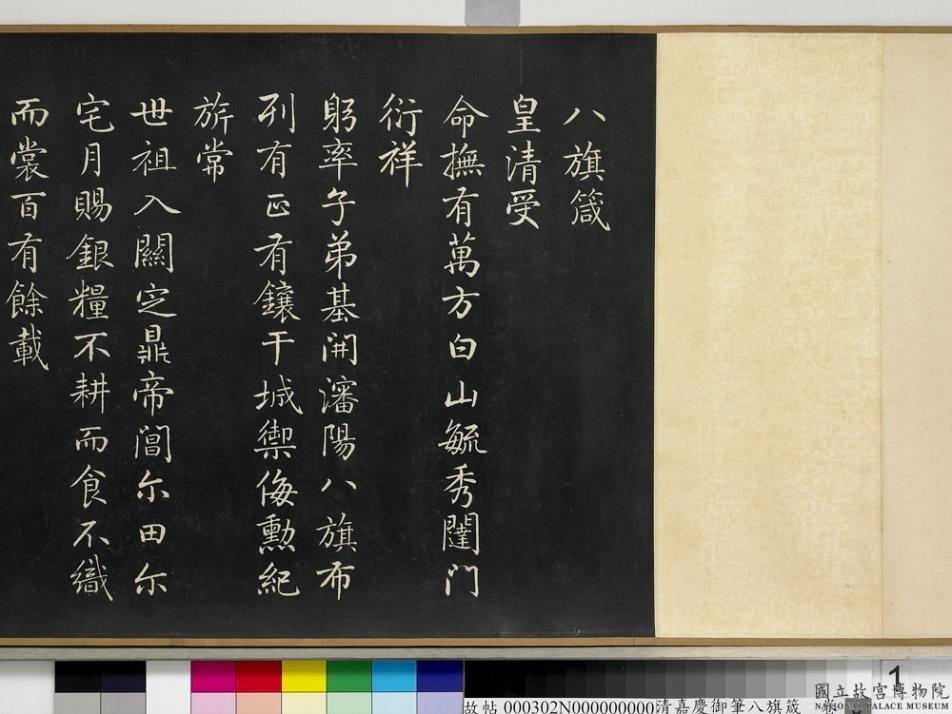 八旗箴
皇清受
命撫有萬方白山毓秀闥門
衍祥
躬率子弟基開瀋陽八旗布
列有正有鑲干城禦侮勳紀
旂常
世祖入關定鼎帝閶尓田尓
宅月賜銀糧不耕而食不織
而裳百有餘載
1
國立故宮博物院
NATIONAL PALACE MUSEUM
故帖 000302N000000000清嘉慶御筆八旗箴 卷